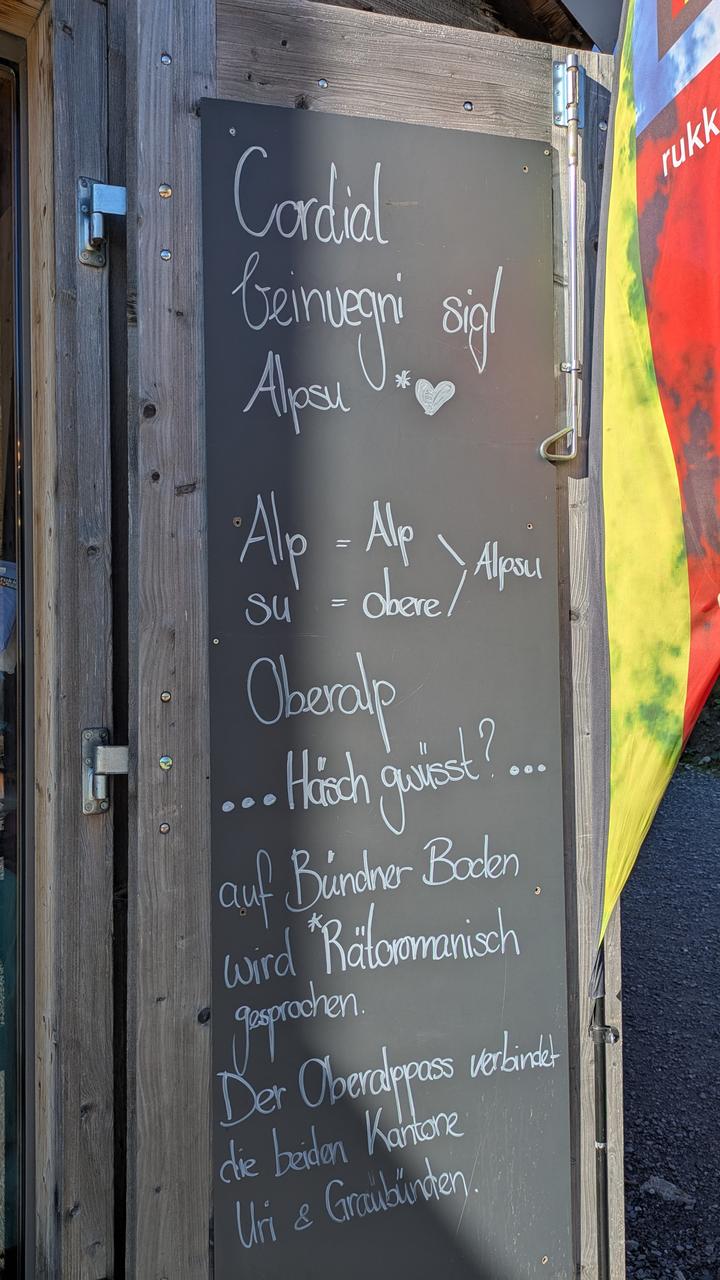 Cordial
beinvegni sigl
Alpsu *♥
Alp = Alp \ Alpsu
su = obere /
Oberalp
...Häsch gwüsst?...
auf Bündner Boden
wird *Rätoromanisch
gesprochen.
Der Oberalppass verbindet
die beiden Kantone
Uri & Graubünden.
rukk